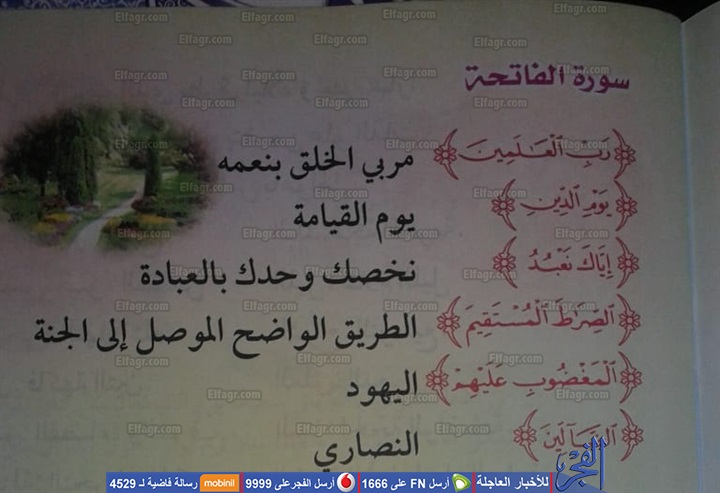 سورة الفاتحة
﴿رَبِّ الْعَالَمِينَ﴾ مربي الخلق بنعمه
﴿يَوْمِ الدِّينِ﴾ يوم القيامة
﴿إِيَّاكَ نَعْبُدُ﴾ نخصك وحدك بالعبادة
﴿الصِّرَاطَ الْمُسْتَقِيمَ﴾ الطريق الواضح الموصل إلى الجنة
﴿الْمَغْضُوبِ عَلَيْهِمْ﴾ اليهود
﴿الضَّالِّينَ﴾ النصاري
الفجر
للأخبار العاجلة أرسل FN على 1666 أرسل الفجر على 9999 mobinil رسالة فاضية لـ 4529
Elfagr.com